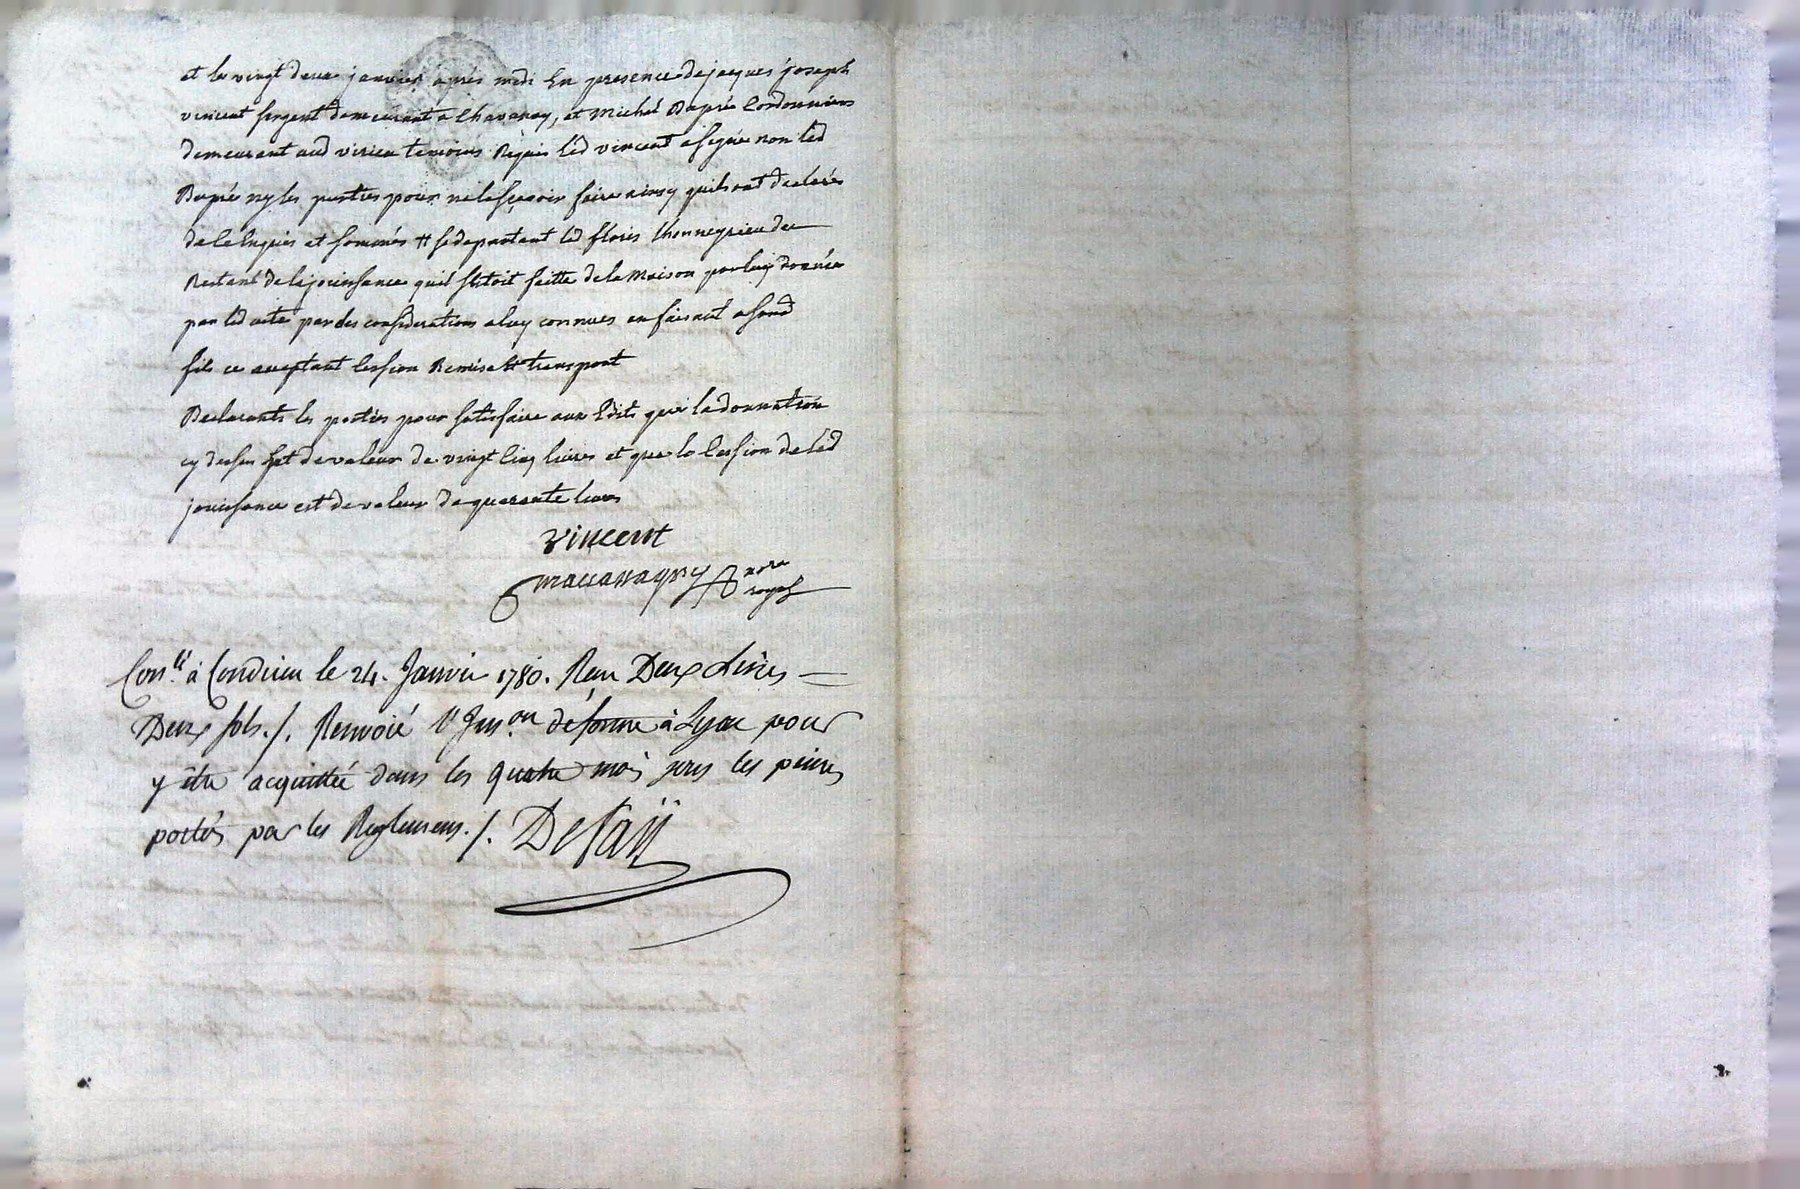 et le vingt deux janvier après midi En presence de jacques joseph
vincent sergent demeurant a Chavanay, et Michel Dupré Cordonnier
demeurant aud virieu temoins Requis led vincent a signé non led
Dupré ny les parties pour ne le sçavoir faire ainsy quils ont declarés
de ce Enquis et sommés # se departant led floris
Restant de la jouissance quil s'etoit faitte de la Maison par luy donnée
par led acte par des considerations a luy connues en faisant a sond
fils ce acceptant Cession Remise Et transport
Declarants les parties pour satisfaire aux Edits que la donnation
cy dessus Est de valeur de vingt Cinq livres et que la Cession de lad
jouissance est de valeur de quarante livres
vincent
nore
royal
Con.lé à Condrieu le 24. Janvier 1780. Reçu Deux Livres
Deux sols ./. Renvoié l'Insi.on de forme à Lyon pour
y être acquittée dans les quatre mois sous les peines
portés par les Reglemens ./.